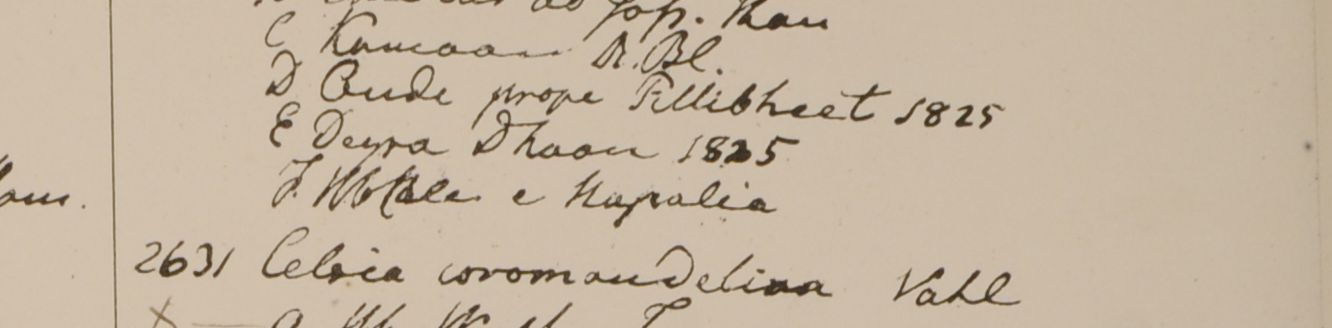 ad Gosp. Than
C Kamaon R. Bl.
D Oude prope Pillibheet 1825
E Deyra Dhoon 1825
F. e Napalia
am.
2631 Celsia coromandelina Vahl